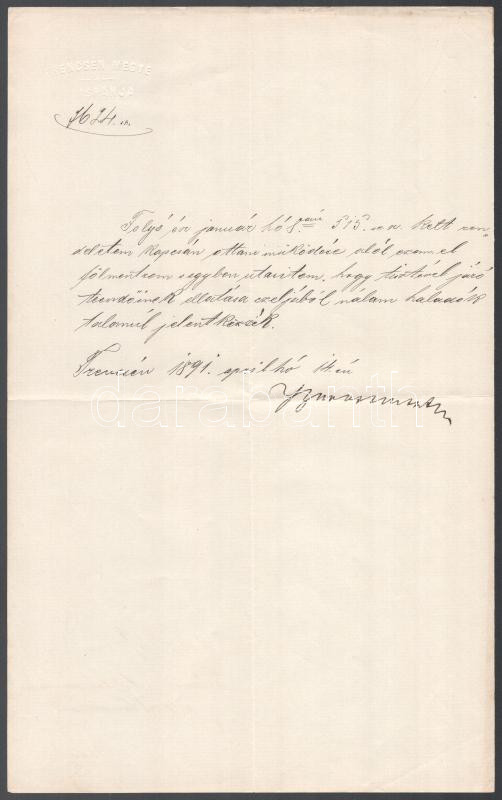 TRENCSÉN MEGYE
ISPÁNJA
1624. sz.
Folyó év január hó 8. án 515. sz. a. kelt ren=
deletem kapcsán ottani működése alól ezennel
fölmentem egyben utasitom, hogy tisztével járó
teendőinek ellátása czéljából nálam haladék
talanúl jelentkezzék.
Trencsén 1891. april hó 14. én
darabanth